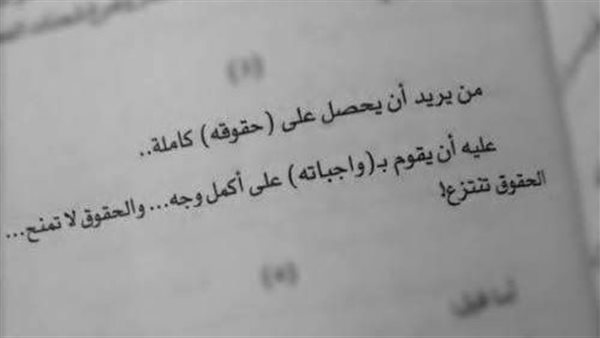 من يريد أن يحصل على (حقوقه) كاملة..
عليه أن يقوم بـ(واجباته) على أكمل وجه... والحقوق لا تمنح...
الحقوق تنتزع!